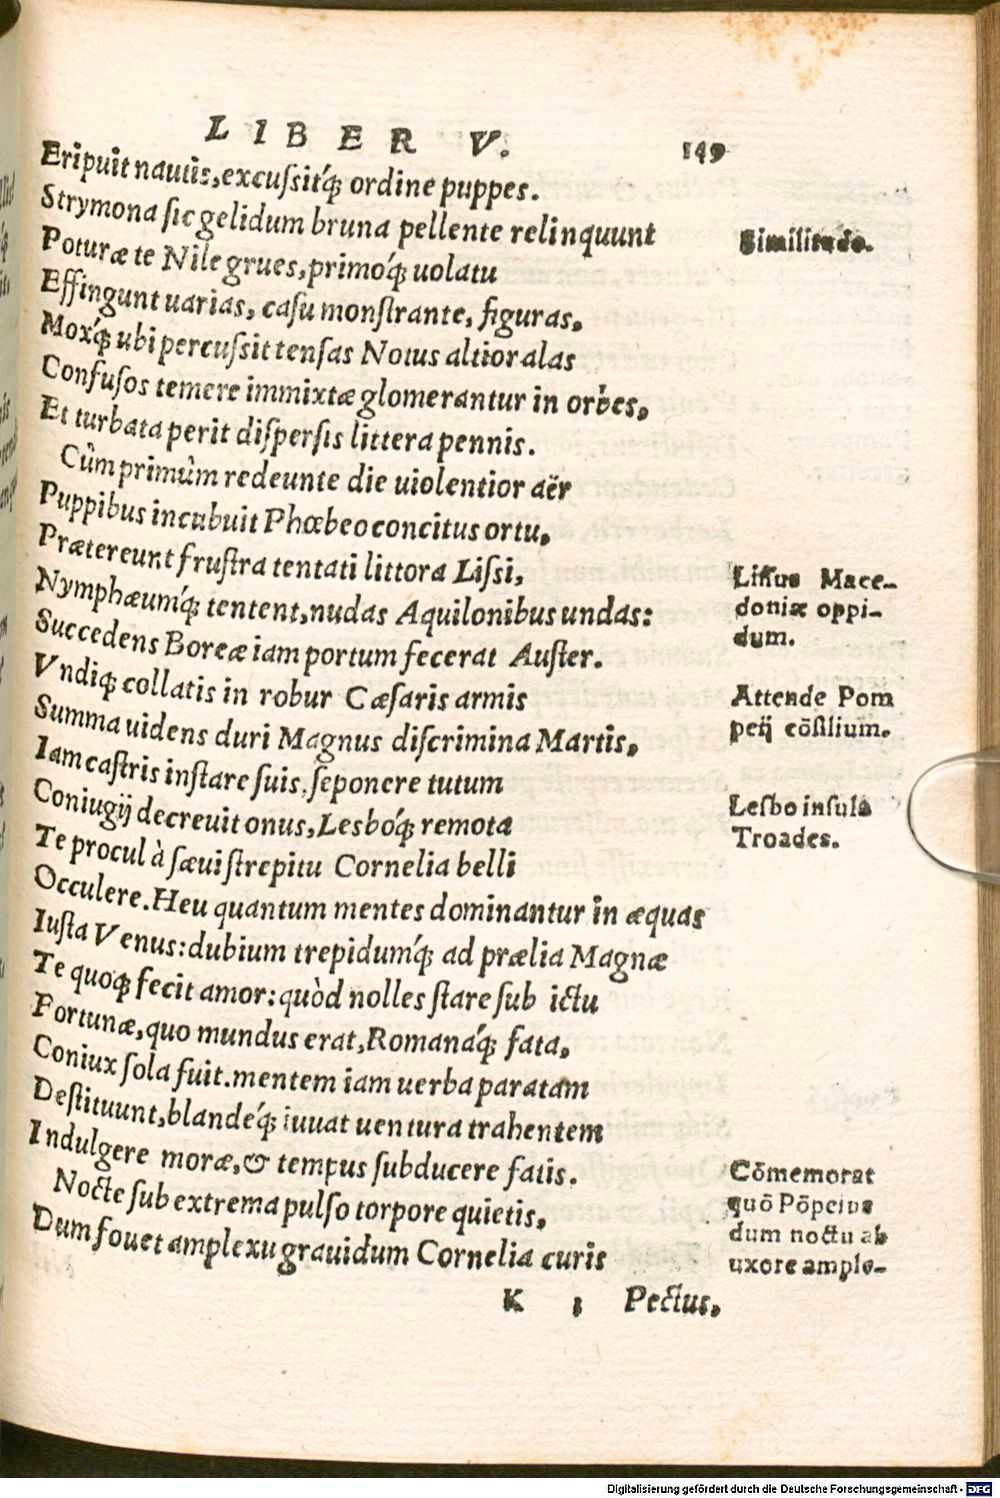 LIBER V. 149
Eripuit nautis, excuſsitq́ꝫ ordine puppes.
Strymona ſic gelidum bruna pellente relinquunt
Similitudo.
Poturæ te Nile grues, primoq́ꝫ uolatu
Effingunt uarias, caſu monſtrante, figuras.
Moxq́ꝫ ubi percuſsit tenſas Notus altior alas
Confuſos temere immixtæ glomerantur in orbes,
Et turbata perit diſperſis littera pennis.
Cûm primùm redeunte die uiolentior aër
Puppibus incubuit Phœbeo concitus ortu,
Prætereunt fruſtra tentati littora Liſsi,
Nymphæumq́ꝫ tentent, nudas Aquilonibus undas:
Liſſus Mace-
doniæ oppi-
dum.
Succedens Boreæ iam portum fecerat Auſter.
Vndiqꝫ collatis in robur Cæſaris armis
Summa uidens duri Magnus diſcrimina Martis,
Attende Pom
peij cōſilium.
Iam caſtris inſtare ſuis, ſeponere tutum
Coniugij decreuit onus, Lesboq́ꝫ remota
Lesbo inſula
Troades.
Te procul à ſæui ſtrepitu Cornelia belli
Occulere. Heu quantum mentes dominantur in æquas
Iuſta Venus: dubium trepidumq́ꝫ ad prælia Magnæ
Te quoqꝫ fecit amor: quòd nolles ſtare ſub ictu
Fortunæ, quo mundus erat, Romanaq́ꝫ fata,
Coniux ſola fuit. mentem iam uerba paratam
Deſtituunt, blandeq́ꝫ iuuat uentura trahentem
Indulgere moræ, & tempus ſubducere fatis.
Nocte ſub extrema pulſo torpore quietis,
Dum fouet amplexu grauidum Cornelia curis
Cōmemorat
quō Pōpeius
dum noctu ab
uxore ample-
K 1 Pectus,
Digitalisierung gefördert durch die Deutsche Forschungsgemeinschaft - DFG